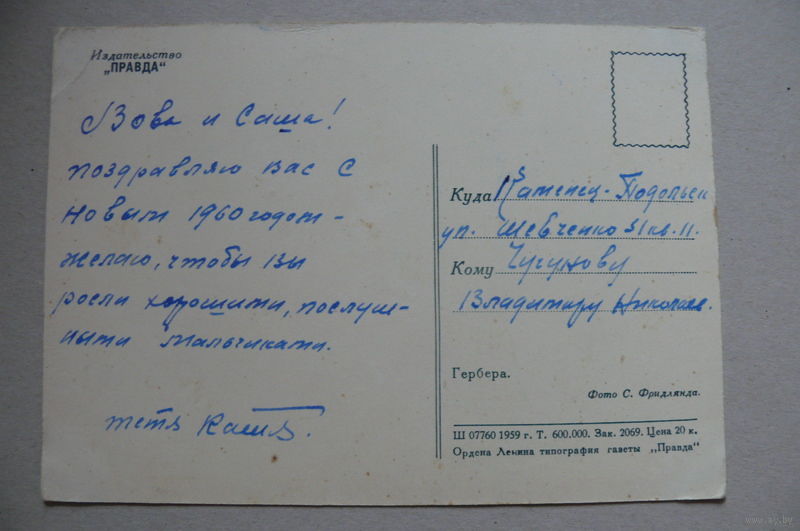 Издательство
„ПРАВДА“
Вова и Саша!
поздравляю вас с
Новым 1960 годом -
желаю, чтобы вы
росли хорошими, послуш-
ными мальчиками.
тетя Катя.
Куда Каменец-Подольск
ул. Шевченко 31 кв. 11.
Кому Чугунову
Владимиру Николаев.
Гербера.
Фото С. Фридлянда.
Ш 07760 1959 г. Т. 600.000. Зак. 2069. Цена 20 к.
Ордена Ленина типография газеты „Правда“
www.ay.by